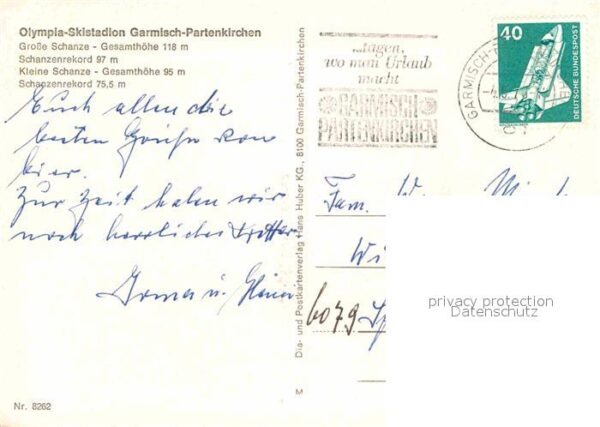 Olympia-Skistadion Garmisch-Partenkirchen
Große Schanze - Gesamthöhe 118 m
Schanzenrekord 97 m
Kleine Schanze - Gesamthöhe 95 m
Schanzenrekord 75,5 m
Euch allen die
besten Grüße von
hier.
Zur Zeit haben wir
noch herrliches Wetter.
Irma u.
Nr. 8262
Dia- und Postkartenverlag Hans Huber KG., 8100 Garmisch-Partenkirchen
M
...tagen,
wo man Urlaub
macht
GARMISCH
PARTENKIRCHEN
GARMISCH-P
40
DEUTSCHE BUNDESPOST
Fam.
Wi
6079 Sp
privacy protection
Datenschutz